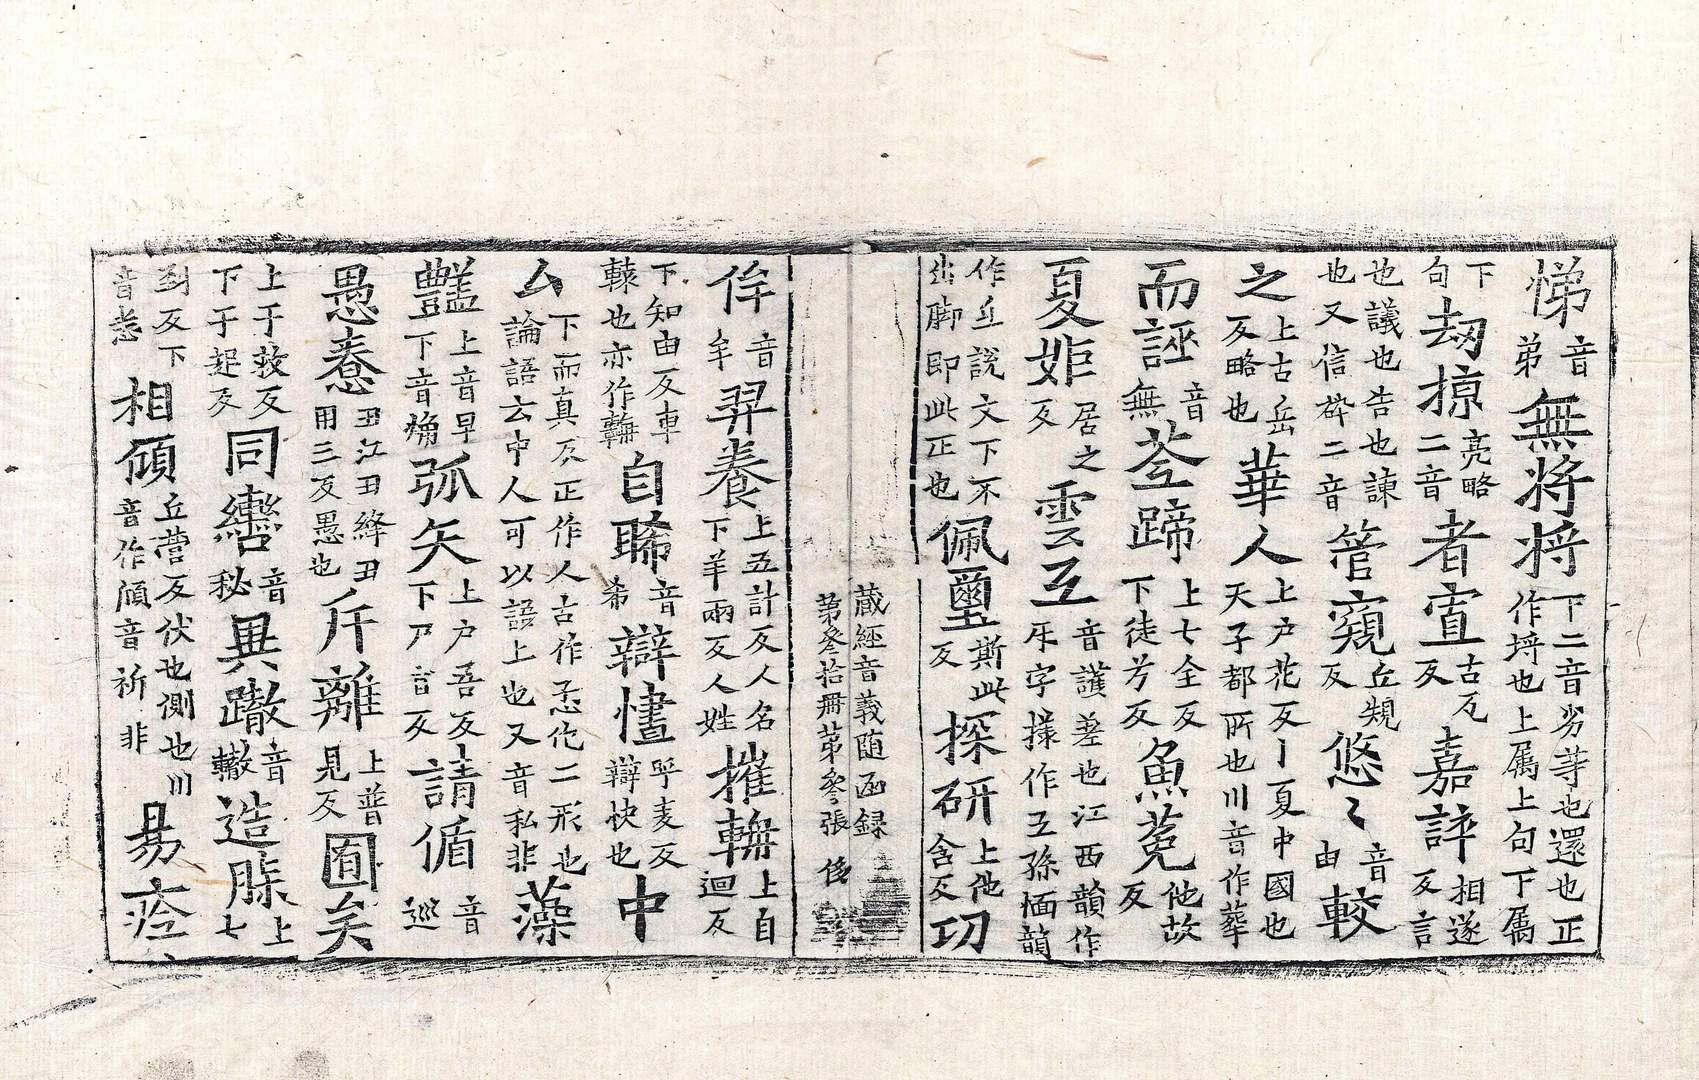 悌音弟無將將下二音劣等也還也正作埒也上属上句下属
下句劫掠亮略二音者㝛古瓦反嘉誶相遂反言
也議也告也諫也又信碎二音管窺丘規反悠〻音由較
之上古岳反略也華人上户花反丨夏中國也天子都所也川音作葬
而誣音無荃蹄上七全反下徒芳反魚菟他故反
夏姬居之反雲㸦音護差也江西韻作㸦字㨾作㸦孫愐韻
作㸦說文下不出㡿即此正也佩璽斯此反探研上他含反㓛
藏經音義随函録
第叄拾冊第叄張 俊
侔音牟羿養上五計反人名下羊兩反人姓摧轓上自迴反
下知由反車轅也亦作輈自睎音希辯㦎呼麦反辯快也中
厶下而真反正作人古作𢖩伦二形也論語云中人可以語上也又音私非藻
豔上音早下音焰弧矢上户吾反下尸旨反請循音巡
愚惷丑江丑絳丑用三反愚也斥離上昔見反囿矣
上于救反下于起反同轡音秘異蹾音轍造牀上七
到反下音恙相傾丘营反伏也側也川音作頎音祈非易㽵